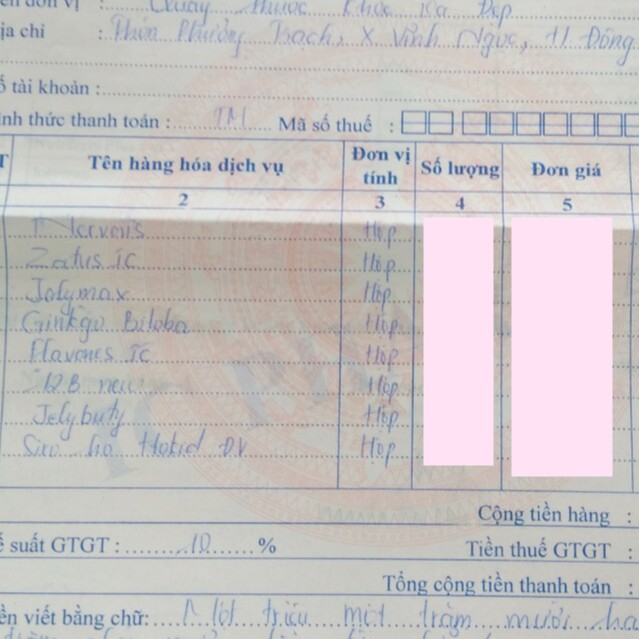 ên đơn vị : Quầy thuốc Khỏe Và Đẹp
ịa chỉ : Thôn Phương Trạch, X Vĩnh Ngọc, H Đông
ố tài khoản :
ình thức thanh toán : TM Mã số thuế :
T Tên hàng hóa dịch vụ Đơn vị tính Số lượng Đơn giá
2 3 4 5
Hộp
Zatus ic Hộp
Jolymax Hộp
Ginkgo Biloba Hộp
Flavones ic Hộp
new Hộp
Jelybuty Hộp
Siro ho Hotid ĐV Hộp
Cộng tiền hàng :
ế suất GTGT : 10 % Tiền thuế GTGT :
Tổng cộng tiền thanh toán :
ền viết bằng chữ: Một triệu một trăm mười hai